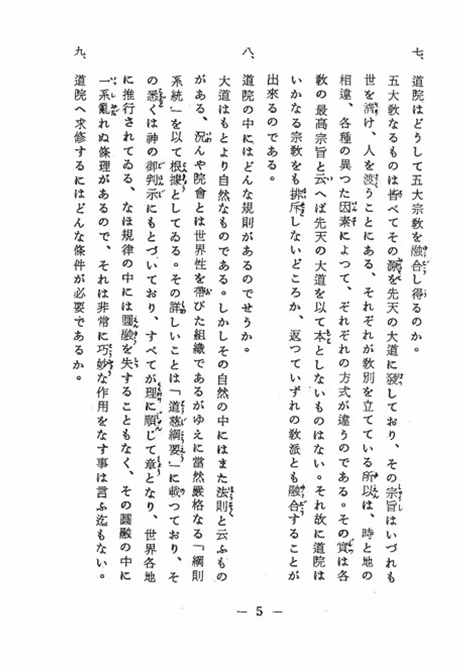 七、道院はどうして五大宗教を融合し得るのか。
五大教なるものは皆べてその源を先天の大道に發しており、その宗旨はいづれも
世を済け、人を渡うことにある、それぞれが教別を立てている所以は、時と地の
相違、各種の異つた因素によつて、ぞれぞれの方式が違うのである。その實は各
教の最高宗旨と云へば先天の大道を以て本としないものはない。それ故に道院は
いかなる宗教をも排斥しないどころか、返つていずれの教派とも融合することが
出來るのである。
八、道院の中にはどんな規則があるのでせうか。
大道はもとより自然なものである。しかしその自然の中にはまた法則と云ふもの
がある、況んや院會とは世界性を帶びた組織であるがゆえに當然嚴格なる「綱則
系統」を以て根據としてゐる。その詳しいことは「道慈綱要」に載つており、そ
の悉くは神の御判示にもとづいており、すべてが理に順じて章となり、世界各地
に推行されてゐる、なほ規律の中には圓融を失することもなく、その圓融の中に
一系亂れぬ條理があるので、それは非常に巧妙な作用をなす事は言ふ迄もない。
九、道院へ求修するにはどんな條件が必要であるか。
— 5 —